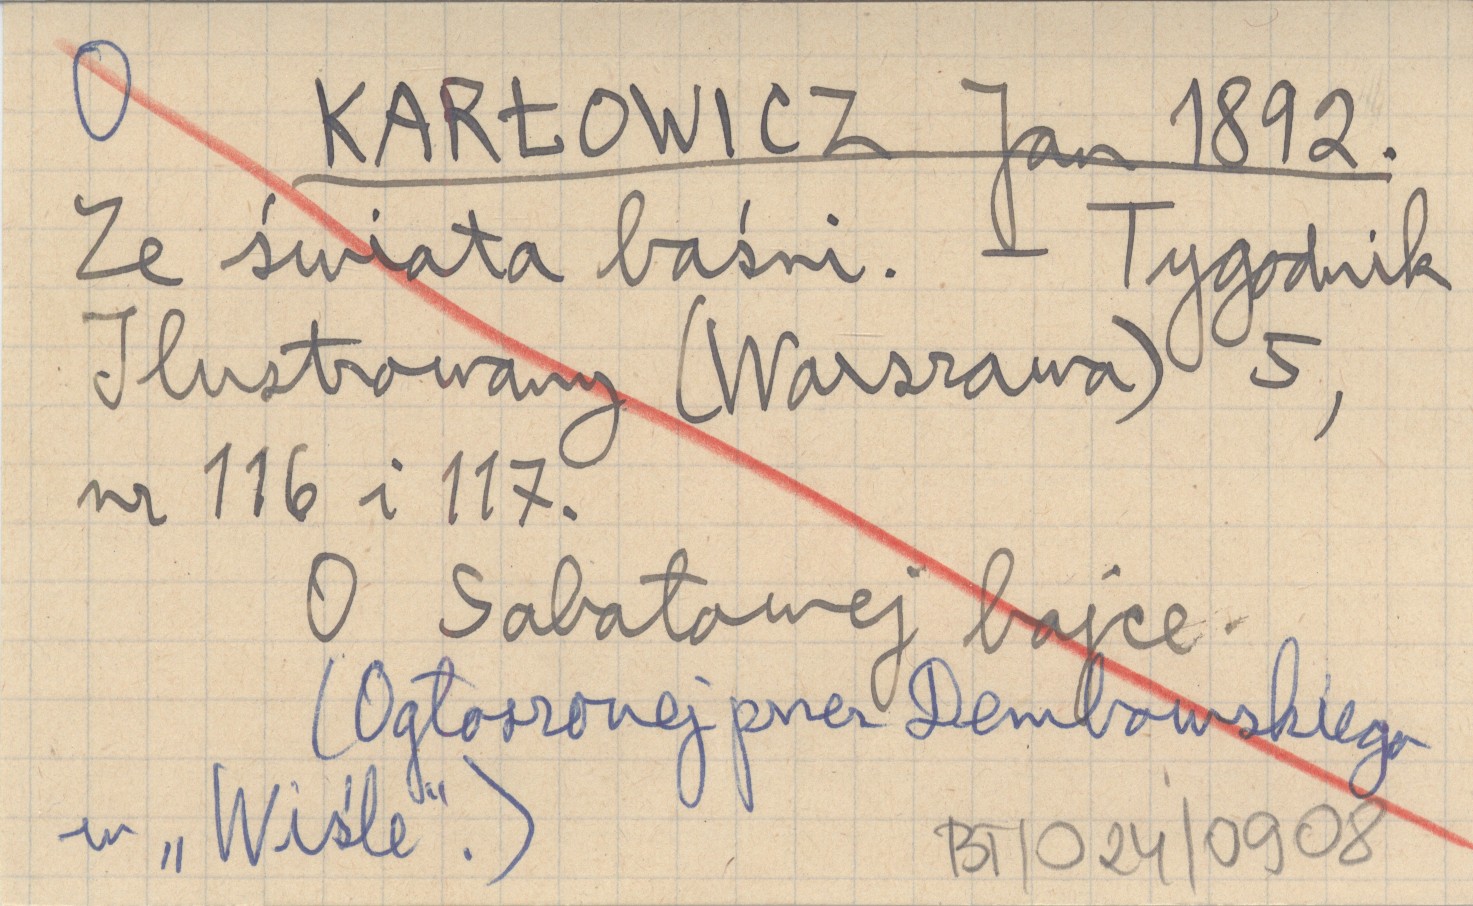 O KARŁOWICZ Jan 1892.
Ze świata baśni. – Tygodnik
Ilustrowany (Warszawa) 5,
nr 116 i 117.
O Sabałowej bajce.
(Ogłoszonej przez Dembowskiego
w „Wiśle".)
BT/024/0908